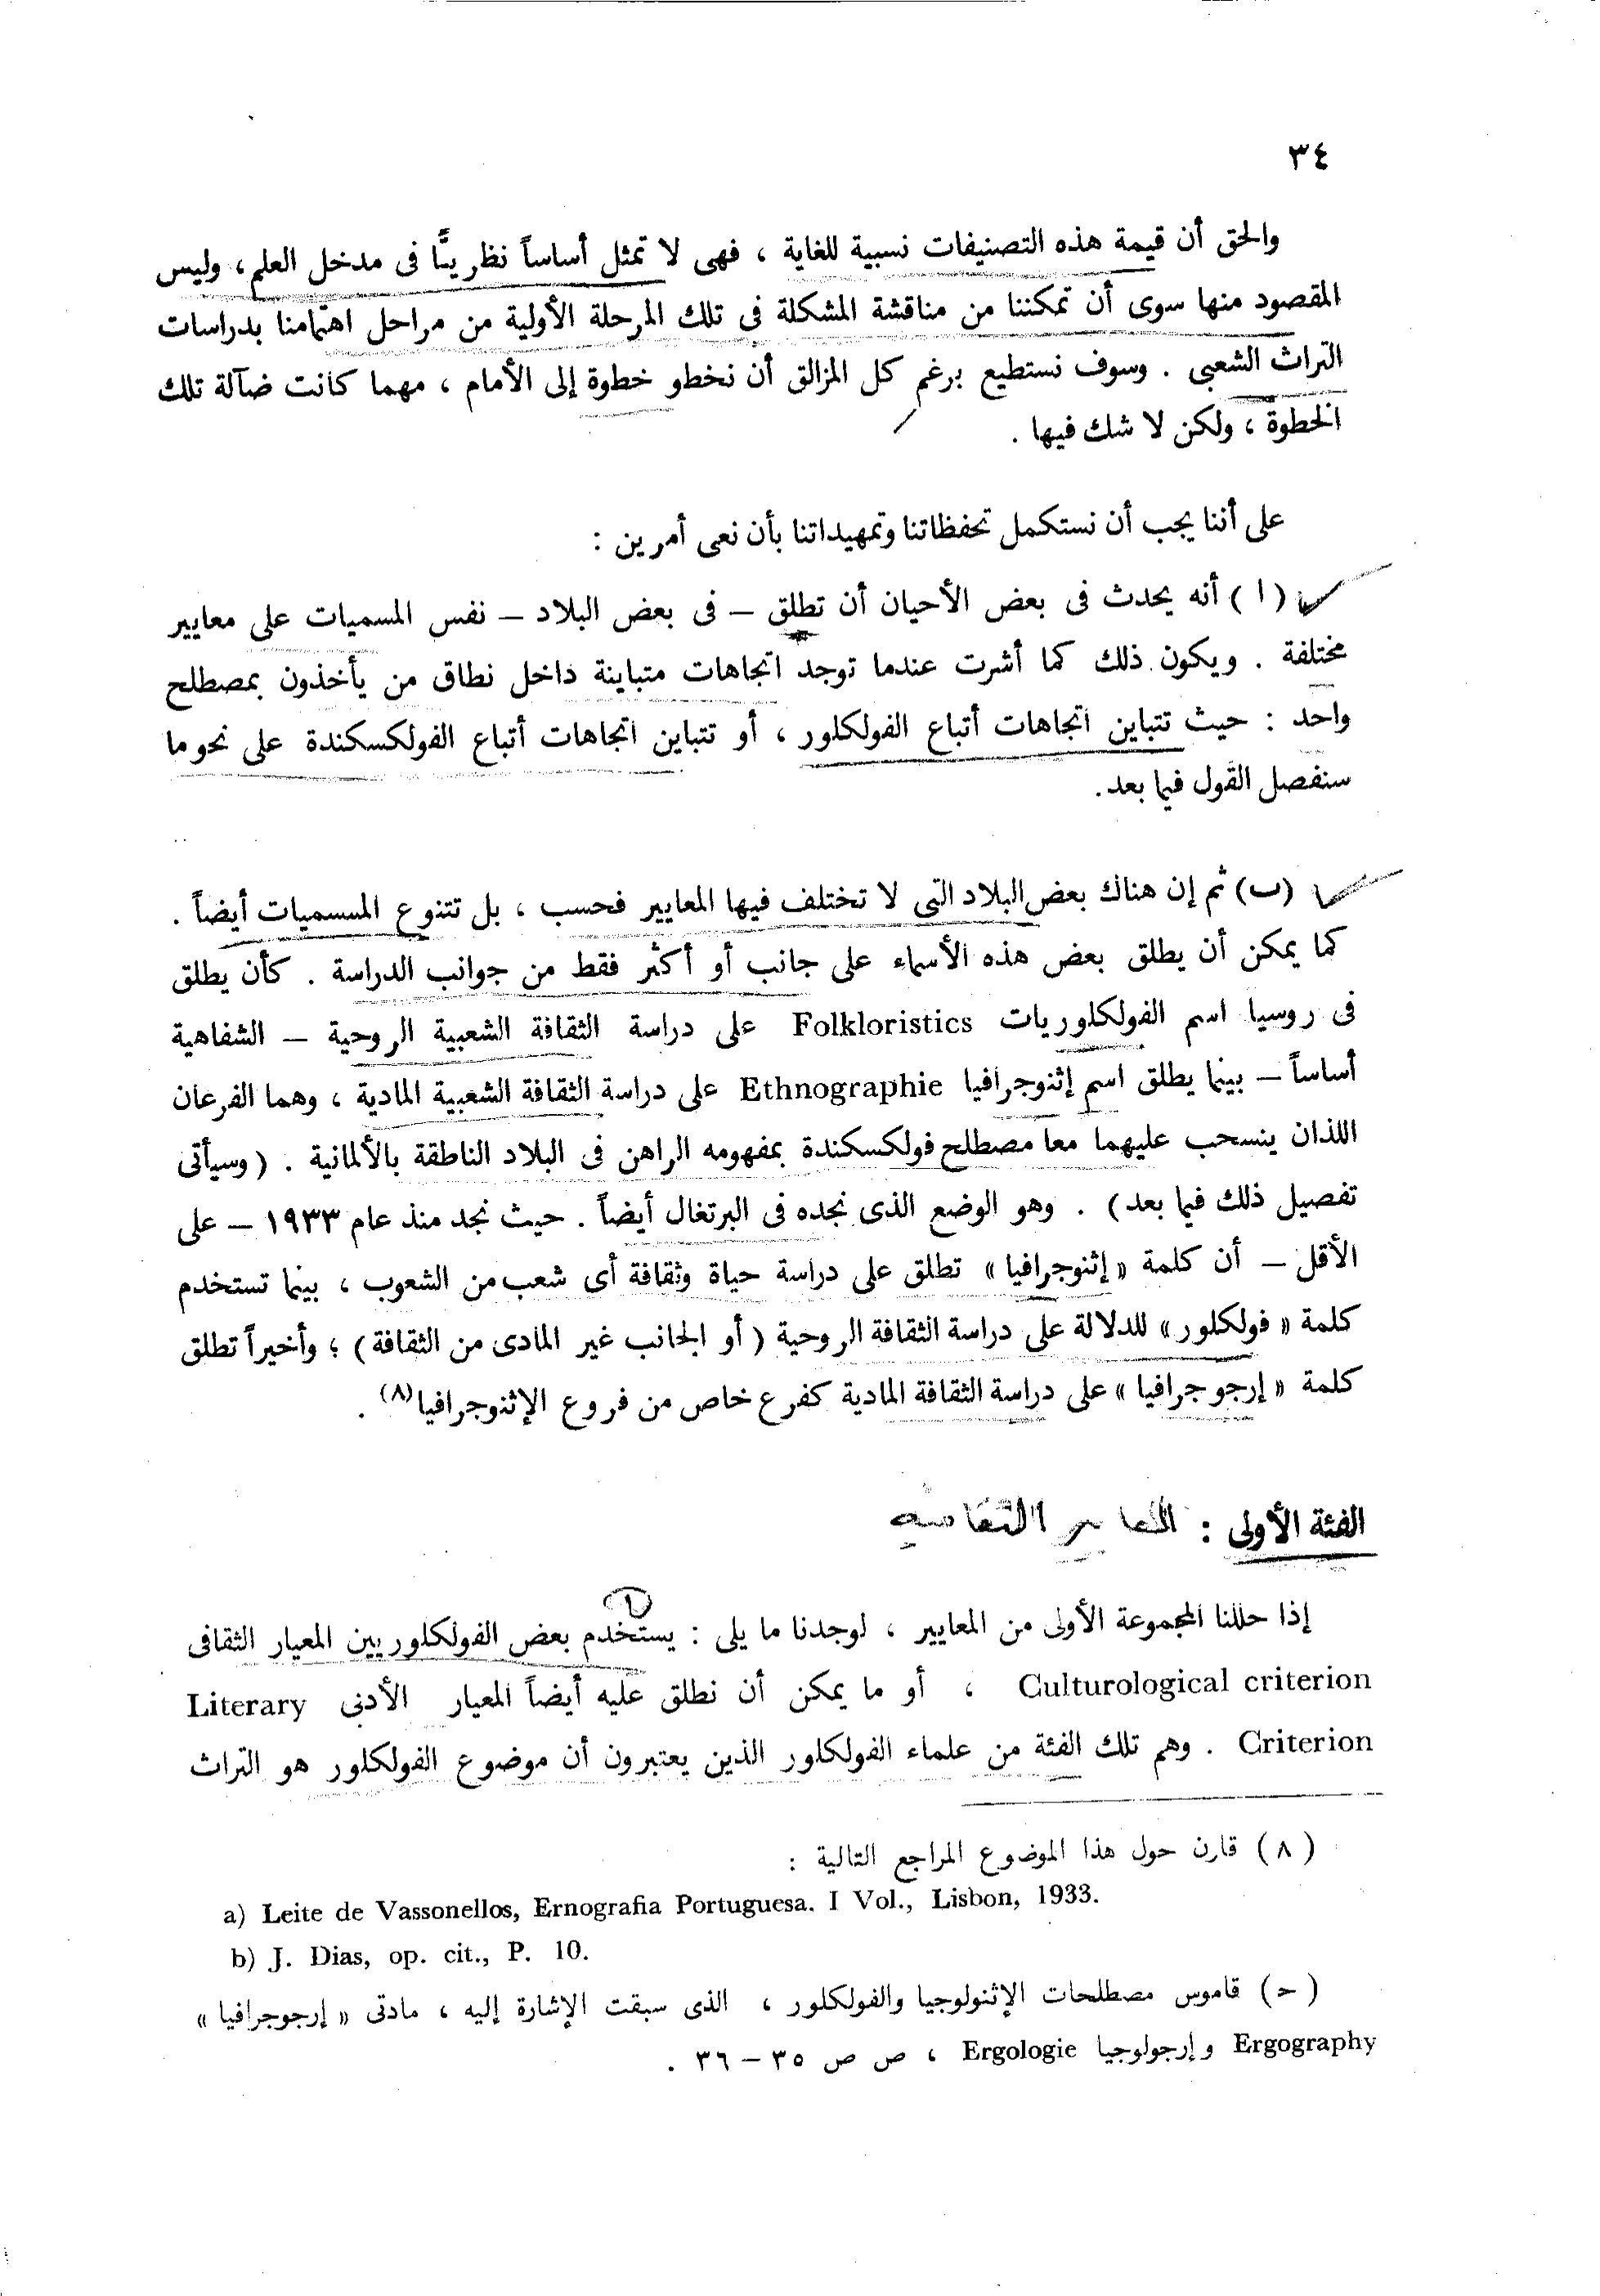 ٣٤
والحق أن قيمة هذه التصنيفات نسبية للغاية ، فهى لا تمثل أساساً نظريًّا فى مدخل العلم ، وليس
المقصود منها سوى أن تمكننا من مناقشة المشكلة فى تلك المرحلة الأولية من مراحل اهتمامنا بدراسات
التراث الشعبى . وسوف نستطيع برغم كل المزالق أن نخطو خطوة إلى الأمام ، مهما كانت ضآلة تلك
الخطوة ، ولكن لا شك فيها .
على أننا يجب أن نستكمل تحفظاتنا وتمهيداتنا بأن نعى أمرين :
( ا ) أنه يحدث فى بعض الأحيان أن تطلق – فى بعض البلاد – نفس المسميات على معايير
مختلفة . ويكون ذلك كما أشرت عندما توجد اتجاهات متباينة داخل نطاق من يأخذون بمصطلح
واحد : حيث تتباين اتجاهات أتباع الفولكلور ، أو تتباين اتجاهات أتباع الفولكسكندة على نحو ما
سنفصل القول فيما بعد .
(ب) ثم إن هناك بعض البلاد التى لا تختلف فيها المعايير فحسب ، بل تتنوع المسميات أيضاً .
كما يمكن أن يطلق بعض هذه الأسماء على جانب أو أكثر فقط من جوانب الدراسة . كأن يطلق
فى روسيا اسم الفولكلوريات Folkloristics على دراسة الثقافة الشعبية الروحية – الشفاهية
أساساً – بينما يطلق اسم إثنوجرافيا Ethnographie على دراسة الثقافة الشعبية المادية ، وهما الفرعان
اللذان ينسحب عليهما معا مصطلح فولكسكندة بمفهومه الراهن فى البلاد الناطقة بالألمانية . ( وسيأتى
تفصيل ذلك فيما بعد ) . وهو الوضع الذى نجده فى البرتغال أيضاً . حيث نجد منذ عام ١٩٣٣ – على
الأقل – أن كلمة « إثنوجرافيا » تطلق على دراسة حياة وثقافة أى شعب من الشعوب ، بينما تستخدم
كلمة « فولكلور » للدلالة على دراسة الثقافة الروحية ( أو الجانب غير المادى من الثقافة ) ؛ وأخيراً تطلق
كلمة « إرجوجرافيا » على دراسة الثقافة المادية كفرع خاص من فروع الإثنوجرافيا (٨) .
الفئة الأولى :
١
إذا حللنا المجموعة الأولى من المعايير ، لوجدنا ما يلى : يستخدم بعض الفولكلوريين المعيار الثقافى
Culturological criterion ، أو ما يمكن أن نطلق عليه أيضاً المعيار الأدبى Literary
Criterion . وهم تلك الفئة من علماء الفولكلور الذين يعتبرون أن موضوع الفولكلور هو التراث
( ٨ ) قارن حول هذا الموضوع المراجع التالية :
a) Leite de Vassonellos, Ernografia Portuguesa. I Vol., Lisbon, 1933.
b) J. Dias, op. cit., P. 10.
( ح ) قاموس مصطلحات الإثنولوجيا والفولكلور ، الذى سبقت الإشارة إليه ، مادتى « إرجوجرافيا »
Ergography و إرجولوجيا Ergologie ، ص ص ٣٥ – ٣٦ .